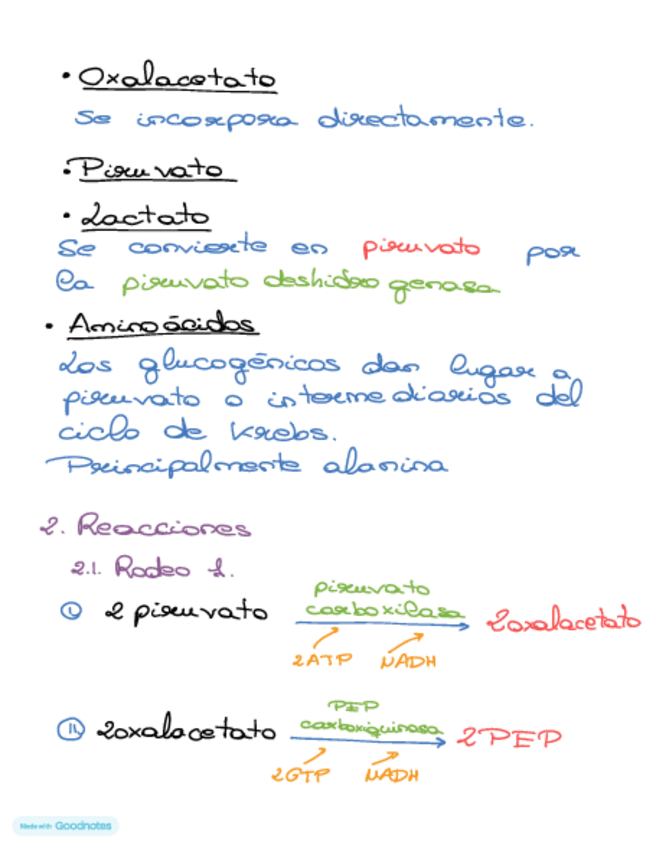 • Oxalacetato
Se incorpora directamente.
• Piruvato
• Lactato
Se convierte en piruvato por
la piruvato deshidrogenasa
• Aminoácidos
Los glucogénicos dan lugar a
piruvato o intermediarios del
ciclo de Krebs.
Principalmente alanina
2. Reacciones
2.1. Rodeo 1.
piruvato
I. 2 piruvato carboxilasa 2oxalacetato
2ATP NADH
PEP
II. 2oxalacetato carboxiquinasa 2PEP
2GTP NADH
Made with Goodnotes